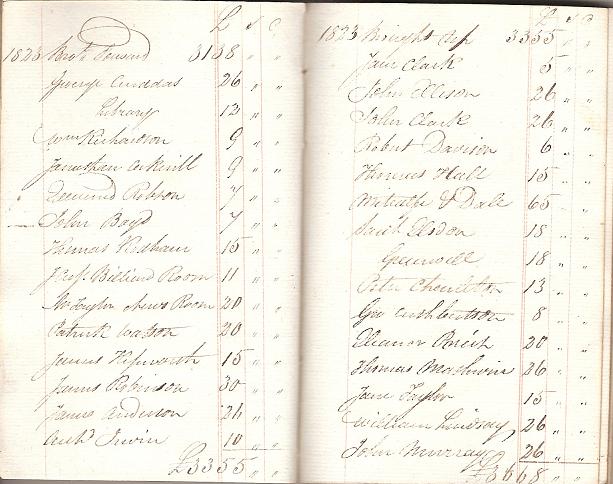 £ s D
1823 Brot Forward 3138 " "
George Cuddas 26 " "
Library 12 " "
Wm Richardson 9 " "
Jonathan 9 " "
Edmund Robson 7 " "
John Boyd 7 " "
Thomas Pledham 15 " "
Billiard Room 11 " "
Taylor News Room 20 " "
Patrick Watson 20 " "
James Hepworth 15 " "
James Robinson 30 " "
James Anderson 26 " "
Anthy Irwin 10 " "
£3355 " "
£ s D
1823 Brought up 3355 " "
Jane Clark 5 " "
John Ellison 26 " "
John Clark 26 " "
Robert Davison 6 " "
Thomas Hall 15 " "
Metcalfe & Dale 65 " "
Elsdon 18 " "
Greenwell 18 " "
Peter Charlton 13 " "
Geo Cuthbertson 8 " "
Eleanor 20 " "
Thomas Machwin 26 " "
Jane Taylor 15 " "
William Lindsay, 26 " "
John Murray 26 " "
£3668 " "